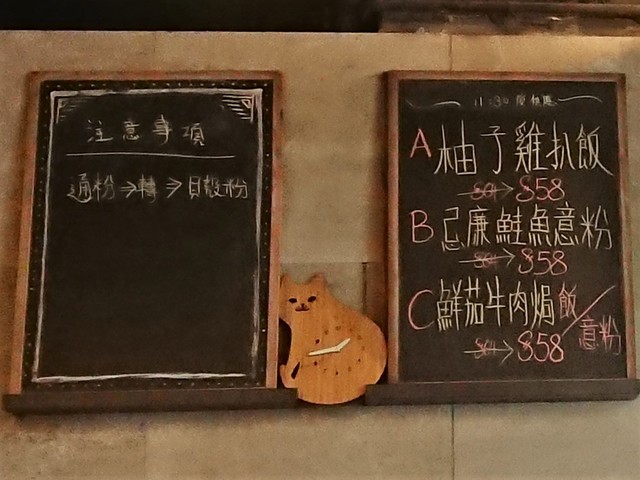 注意事項
通粉→轉→貝殼粉
11:30
A 柚子雞扒飯
$64→$58
B 忌廉鮭魚意粉
→$58
C 鮮茄牛肉焗飯/意粉
$64→$58